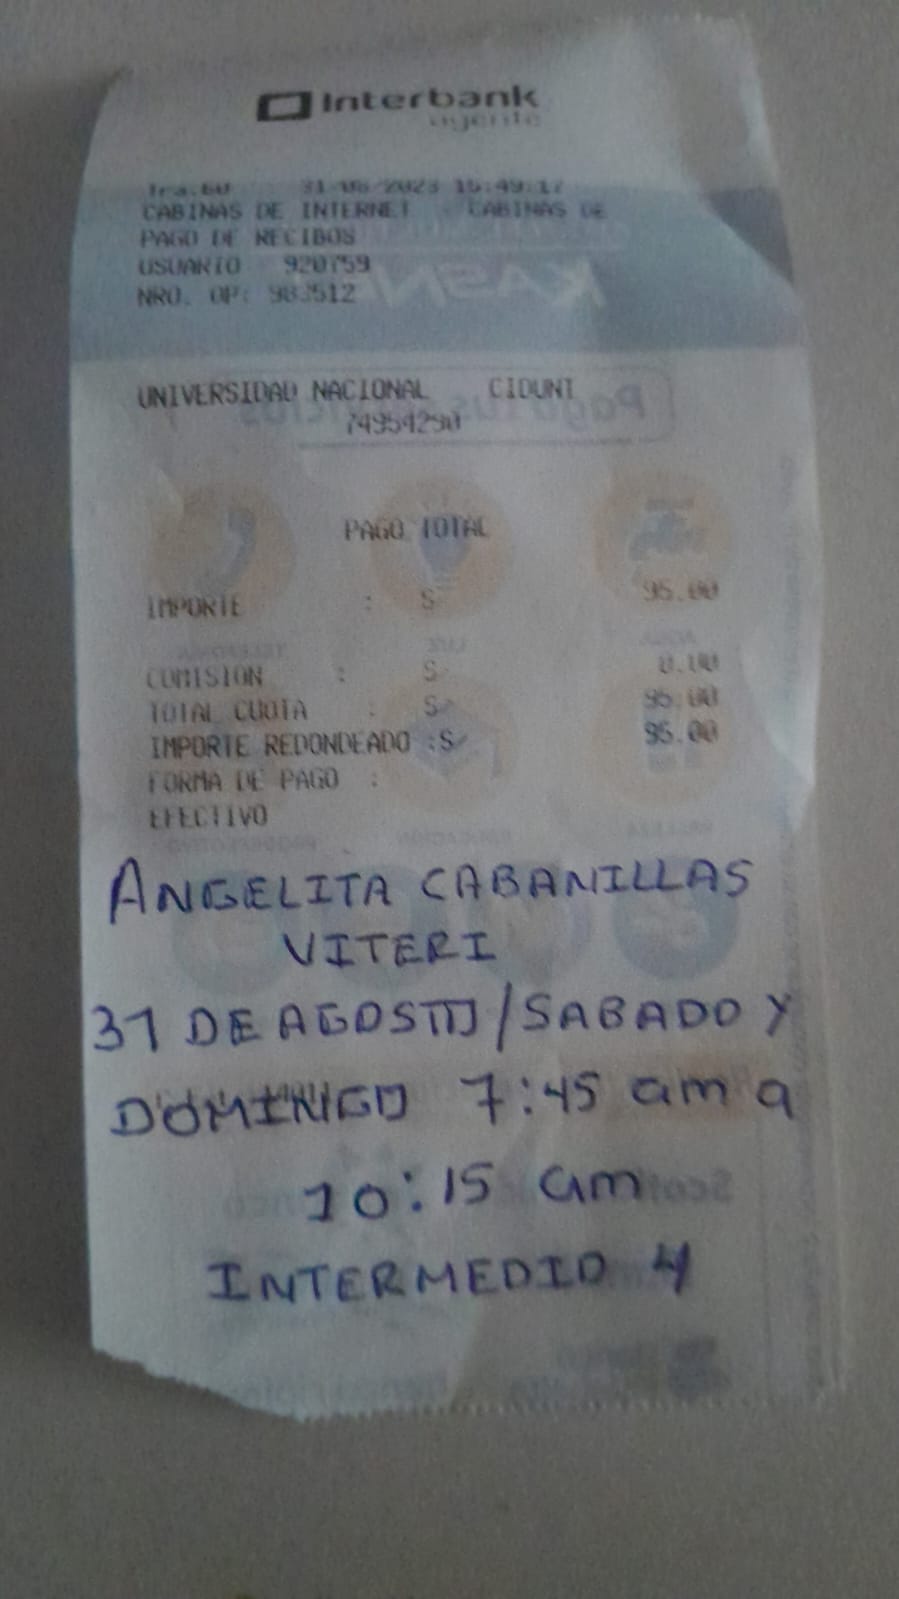 Interbank
agente
Tra.60 31/08/2023 15:49:17
CABINAS DE INTERNET - CABINAS DE
PAGO DE RECIBOS
USUARIO 920759
NRO. OP:
KASNET
UNIVERSIDAD NACIONAL CIDUNT
74954290
Paga tus servicios
PAGO TOTAL
IMPORTE : S/ 95.00
COMISION : S/ 0.00
TOTAL CUOTA : S/ 95.00
IMPORTE REDONDEADO :S/ 95.00
FORMA DE PAGO :
EFECTIVO
ANGELITA CABANILLAS
VITERI
31 DE AGOSTO/SABADO Y
DOMINGO 7:45 am a
10:15 am
INTERMEDIO 4